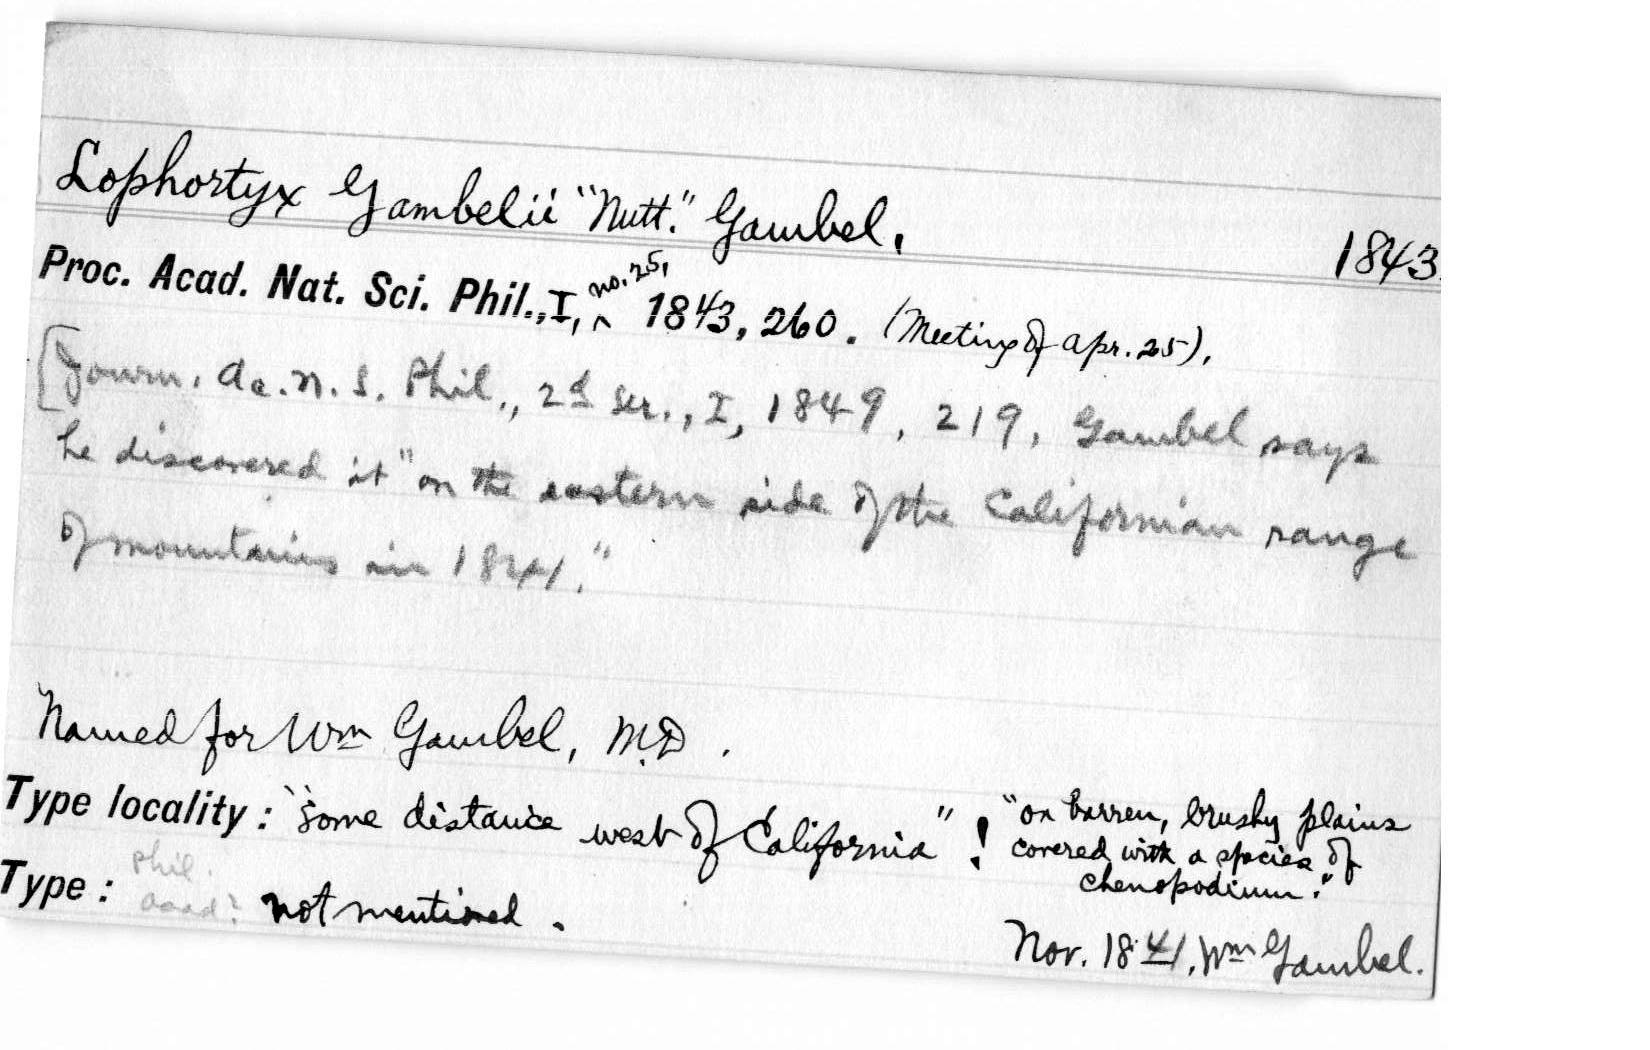 Lophortyx Gambelii "Nutt." Gambel,
1843.
Proc. Acad. Nat. Sci. Phil., I, no. 25, 1843, 260. (Meeting of Apr. 25).
[Journ. Ac. N. S. Phil., 2d ser., I, 1849, 219, Gambel says
he discovered it "on the eastern side of the Californian range
of mountains in 1841."
Named for Wm Gambel, M.D.
Type locality: "some distance west of California"! "on barren, brushy plains
covered with a species of
chenopodium."
Type: Phil. Acad? not mentioned.
Nov. 1841, Wm Gambel.